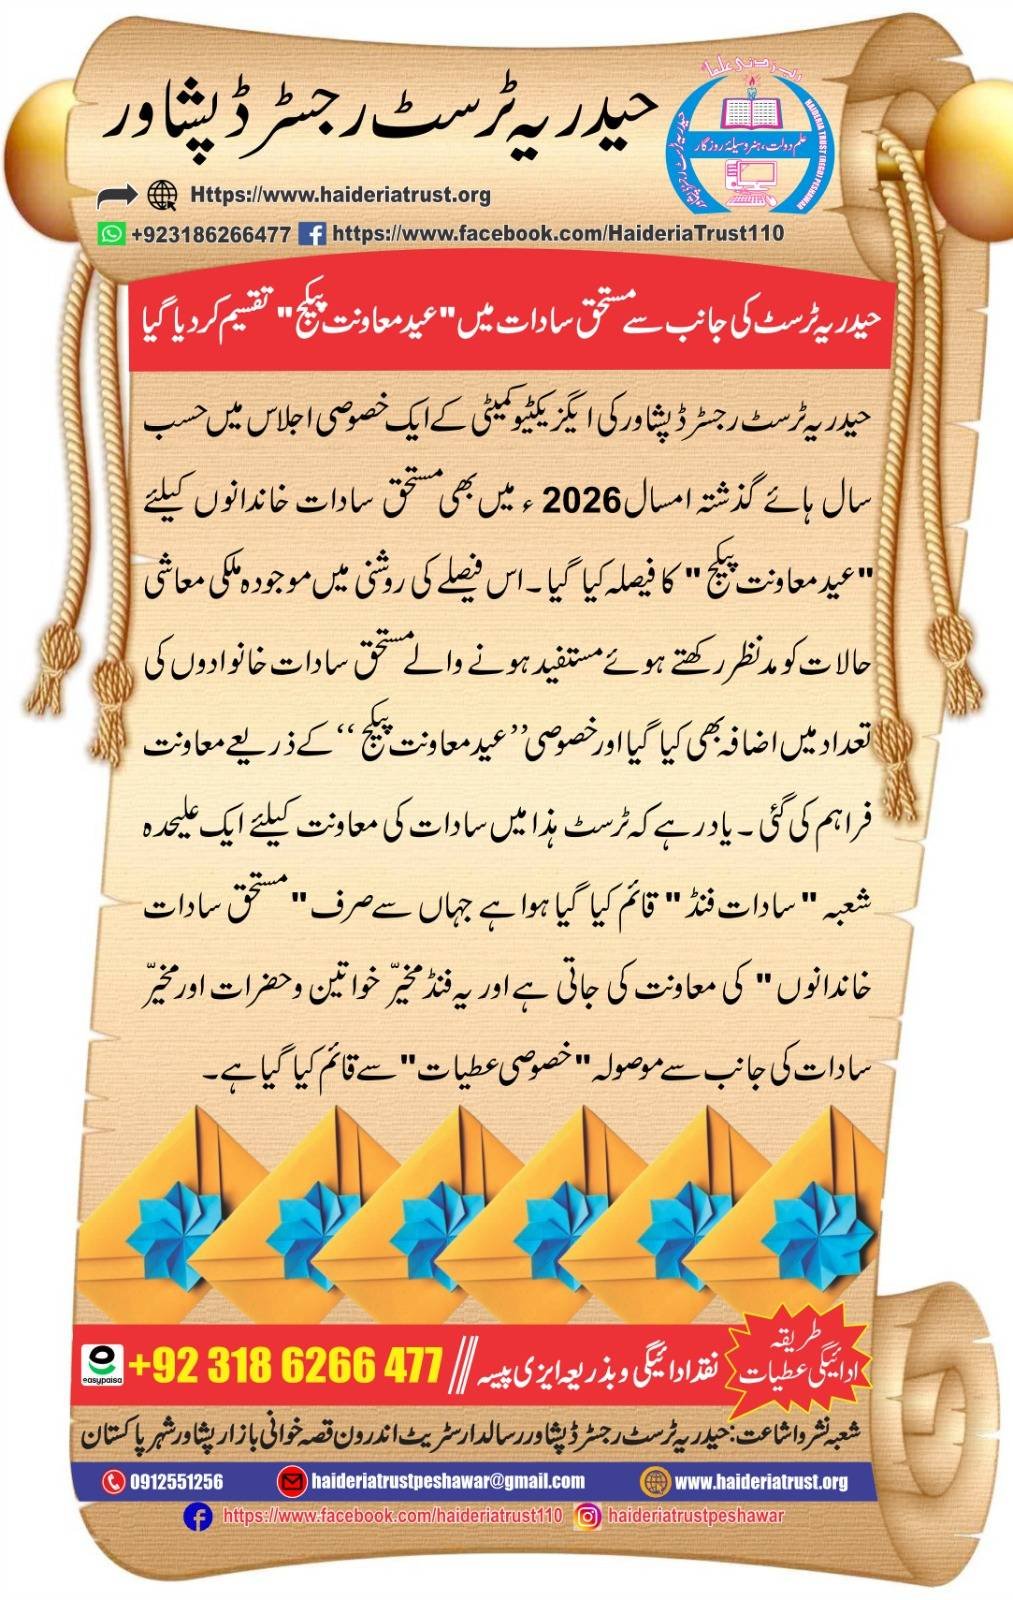 حیدریہ ٹرسٹ رجسٹرڈ پشاور
رب زدنی علما
علم دولت، ہنر وسیلۂ روزگار
HAIDERIA TRUST (REGD) PESHAWAR
Https://www.haideriatrust.org
+923186266477 https://www.facebook.com/HaideriaTrust110
حیدریہ ٹرسٹ کی جانب سے مستحق سادات میں "عید معاونت پیکج" تقسیم کردیا گیا
حیدریہ ٹرسٹ رجسٹرڈ پشاور کی ایگزیکٹیو کمیٹی کے ایک خصوصی اجلاس میں حسب
سال ہائے گذشتہ امسال 2026ء میں بھی مستحق سادات خاندانوں کیلئے
"عید معاونت پیکج" کا فیصلہ کیا گیا۔ اس فیصلے کی روشنی میں موجودہ ملکی معاشی
حالات کو مدنظر رکھتے ہوئے مستفید ہونے والے مستحق سادات خانوادوں کی
تعداد میں اضافہ بھی کیا گیا اور خصوصی ’’عید معاونت پیکج‘‘ کے ذریعے معاونت
فراہم کی گئی ۔ یاد رہے کہ ٹرسٹ ہذا میں سادات کی معاونت کیلئے ایک علیحدہ
شعبہ "سادات فنڈ" قائم کیا گیا ہوا ہے جہاں سے صرف "مستحق سادات
خاندانوں" کی معاونت کی جاتی ہے اور یہ فنڈ مخیّر خواتین و حضرات اور مخیّر
سادات کی جانب سے موصولہ "خصوصی عطیات" سے قائم کیا گیا ہے۔
طریقہ
ادائیگی عطیات
نقد ادائیگی و بذریعہ ایزی پیسہ /// +92 318 6266 477
easypaisa
شعبہ نشر و اشاعت: حیدریہ ٹرسٹ رجسٹرڈ پشاور رسالدار سٹریٹ اندرون قصہ خوانی بازار پشاور شہر پاکستان
0912551256 haideriatrustpeshawar@gmail.com www.haideriatrust.org
https://www.facebook.com/haideriatrust110 haideriatrustpeshawar